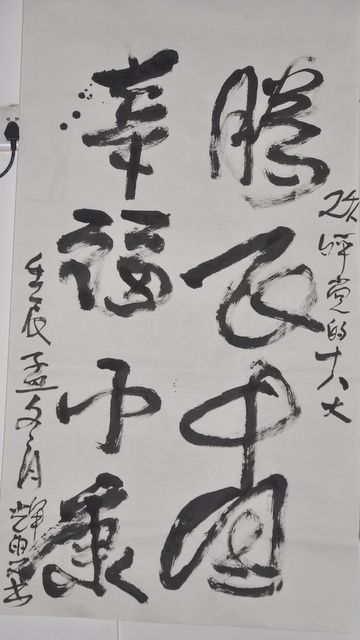 欢呼党的十八大
腾飞中国
幸福小康
壬辰孟冬月 辉